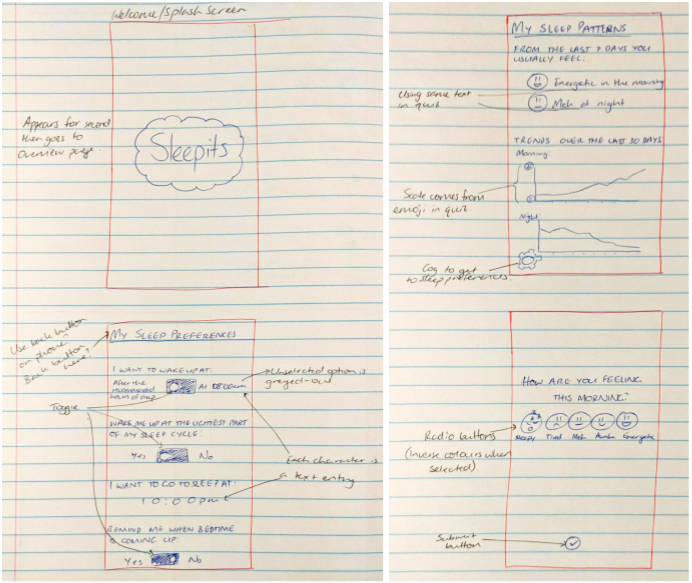 Welcome/Splash Screen
Appears for second
then goes to
Overview page.
Sleepits
Use back button
on phone?
Back button
here?
MY SLEEP PREFERENCES
I WANT TO WAKE UP AT:
After the
recommended
hours of sleep
At 08:00am
Unselected option is
greyed-out
Toggle
WAKE ME UP AT THE LIGHTEST PART
OF MY SLEEP CYCLE:
Yes No
Each character is
a text entry
I WANT TO GO TO SLEEP AT:
10:00pm
REMIND ME WHEN BEDTIME
IS COMING UP:
Yes No
MY SLEEP PATTERNS
FROM THE LAST 7 DAYS YOU
USUALLY FEEL:
Using same text
in quit
Energetic in the morning
Meh at night
TRENDS OVER THE LAST 30 DAYS
Morning:
Scale comes from
emoji in quit
Night
Cog to get
to sleep preferences.
HOW ARE YOU FEELING
THIS MORNING?
Radio buttons
(Inverse colours when
selected)
Tired Meh Energetic
Submit
button